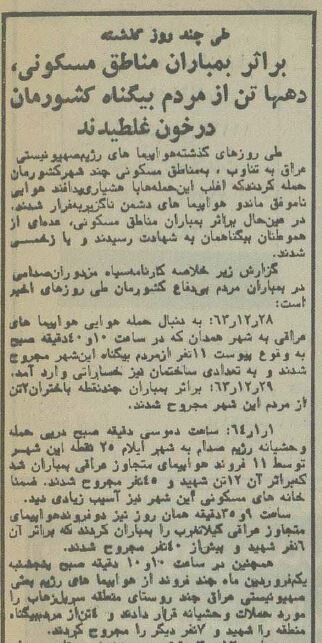 طی چند روز گذشته
براثر بمباران مناطق مسکونی،
دهها تن از مردم بیگناه کشورمان
درخون غلطیدند
طی روزهای گذشته هواپیما های رژیم صهیونیستی
عراق به تناوب ، به مناطق مسکونی چند شهر کشورمان
حمله کردند که اغلب این حمله ها با هشیاری پدافند هوایی
ناموفق ماند و هواپیما های دشمن ناگزیر به فرار شدند.
در عین حال براثر بمباران مناطق مسکونی، عده ای از
هموطنان بیگناهمان به شهادت رسیدند و یا زخمی
شدند.
گزارش زیر خلاصه کارنامه سیاه مزدوران صدامی
در بمباران مردم بی دفاع کشورمان طی روزهای اخیر
است:
۶۳ر۱۲ر۲۸: به دنبال حمله هوایی هواپیما های
عراقی به شهر همدان که در ساعت ۱۰و۴۰دقیقه صبح
به وقوع پیوست ۱۱نفر ازمردم بیگناه این شهر مجروح
شدند و به تعدادی ساختمان نیز خساراتی وارد آمد.
۶۳ر۱۲ر۲۹: براثر بمباران چند نقطه باختران ۲تن
از مردم این شهر مجروح شدند.
۶۴ر۱ر۱: ساعت ده و سی دقیقه صبح درپی حمله
وحشیانه رژیم صدام به شهر ایلام ۲۵ نقطه این شهر
توسط ۱۱ فروند هواپیمای متجاوز عراقی بمباران شد
که براثر آن ۱۲تن شهید و ۴۵نفر مجروح شدند. ضمنا
خانه های مسکونی این شهر نیز آسیب زیادی دید.
ساعت ۹و۳۵دقیقه همان روز نیز دو فروند هواپیمای
متجاوز عراقی گیلانغرب را بمباران کردند که براثر آن
۶نفر شهید و بیش از ۴۰نفر مجروح شدند.
همچنین در ساعت ۱۰و۱۰ دقیقه صبح پنجشنبه
یکم فروردین ماه چند فروند از هواپیما های رژیم بعثی
صهیونیستی عراق چند روستای منطقه سرپل ذهاب را
مورد حملات وحشیانه قرار دادند و ۴تن از مردم بیگناه
منطقه را شهید و ۷نفر دیگر را مجروح کردند.